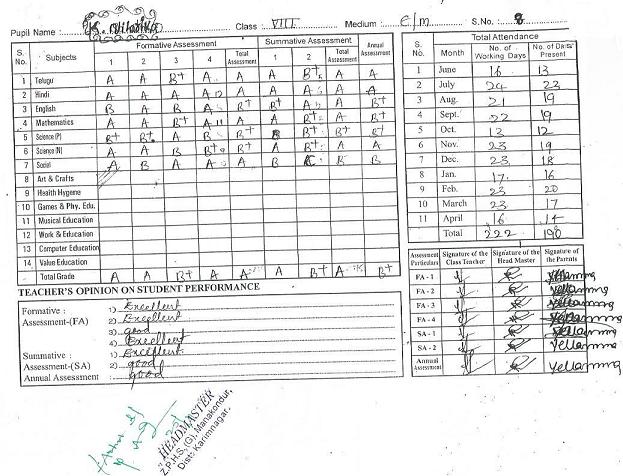 Pupil Name : Class : VIII Medium : e/m S.No. : 8
S. No. Subjects Formative Assessment Summative Assessment Annual Assessment
1 2 3 4 Total Assessment 1 2 Total Assessment
1 Telugu A A B+ A A A B+ A A
2 Hindi A A A A A A A A A
3 English B A B A B+ B+ A A B+
4 Mathematics A A B+ A B+ A B+ A B+
5 Science (P) B+ B+ A B B+ B B+ B+ B+
6 Science (N) A A B B+ B+ A B+ A A
7 Social A B A A A B B B
8 Art & Crafts
9 Health Hygene
10 Games & Phy. Edu.
11 Musical Education
12 Work & Education
13 Computer Education
14 Value Education
Total Grade A A B+ A A A B+ A B+
Total Attendance
S. No. Month No. of Working Days No. of Days Present
1 June 16 13
2 July 24 23
3 Aug. 21 19
4 Sept. 22 19
5 Oct. 13 12
6 Nov. 23 19
7 Dec. 23 18
8 Jan. 17 16
9 Feb. 23 20
10 March 23 17
11 April 16 14
Total 222 190
Assessment Particulars Signature of the Class Teacher Signature of the Head Master Signature of the Parents
FA - 1 Yellamma
FA - 2 Yellamma
FA - 3 Yellamma
FA - 4 Yellamma
SA - 1 Yellamma
SA - 2 Yellamma
Annual Assessment Yellamma
TEACHER'S OPINION ON STUDENT PERFORMANCE
Formative : 1) Excellent
Assessment-(FA) 2) Excellent
3) good
4) Excellent
Summative : 1) Excellent
Assessment-(SA) 2) good
Annual Assessment good
HEADMASTER
Z.P.H.S. (G), Manakondur,
Dist: Karimnagar.